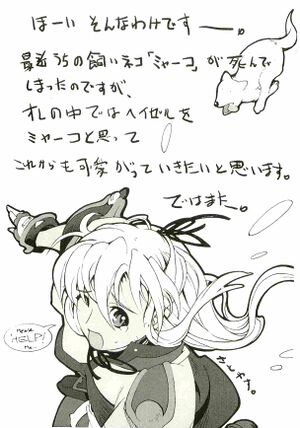 ほーい そんなわけですー。
最近うちの飼いネコ「ミャーコ」が死んで
しまったのですが、
オレの中ではヘイゼルを
ミャーコと思って
これからも可愛がっていきたいと思います。
ではまた。
HELP!
me